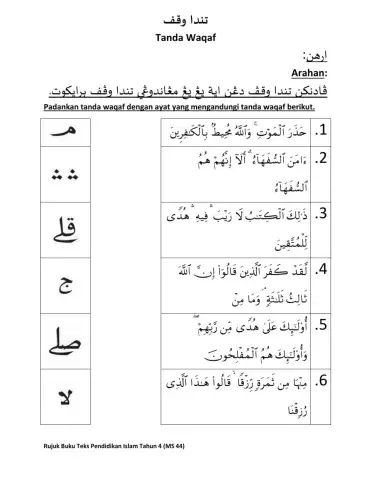 تندا وقف
Tanda Waqaf
ارهن:
Arahan:
ڤادنكن تندا وقف دڠن اية يڠ يڠ مڠاندوڠي تندا وقف برايكوت.
Padankan tanda waqaf dengan ayat yang mengandungi tanda waqaf berikut.
مـ
1. حَذَرَ ٱلْمَوْتِ ۚ وَٱللَّهُ مُحِيطٌۢ بِٱلْكَٰفِرِينَ
∴ ∴
2. ءَامَنَ ٱلسُّفَهَآءُ ۗ أَلَآ إِنَّهُمْ هُمُ
ٱلسُّفَهَآءُ
قلے
3. ذَٰلِكَ ٱلْكِتَٰبُ لَا رَيْبَ ۛ فِيهِ ۛ هُدًى
لِّلْمُتَّقِينَ
ج
4. لَّقَدْ كَفَرَ ٱلَّذِينَ قَالُوٓا۟ إِنَّ ٱللَّهَ
ثَالِثُ ثَلَٰثَةٍ ۘ وَمَا مِنْ
صلے
5. أُو۟لَٰٓئِكَ عَلَىٰ هُدًى مِّن رَّبِّهِمْ ۖ
وَأُو۟لَٰٓئِكَ هُمُ ٱلْمُفْلِحُونَ
لا
6. مِنْهَا مِن ثَمَرَةٍ رِّزْقًا ۙ قَالُوا۟ هَٰذَا ٱلَّذِى
رُزِقْنَا
Rujuk Buku Teks Pendidikan Islam Tahun 4 (MS 44)